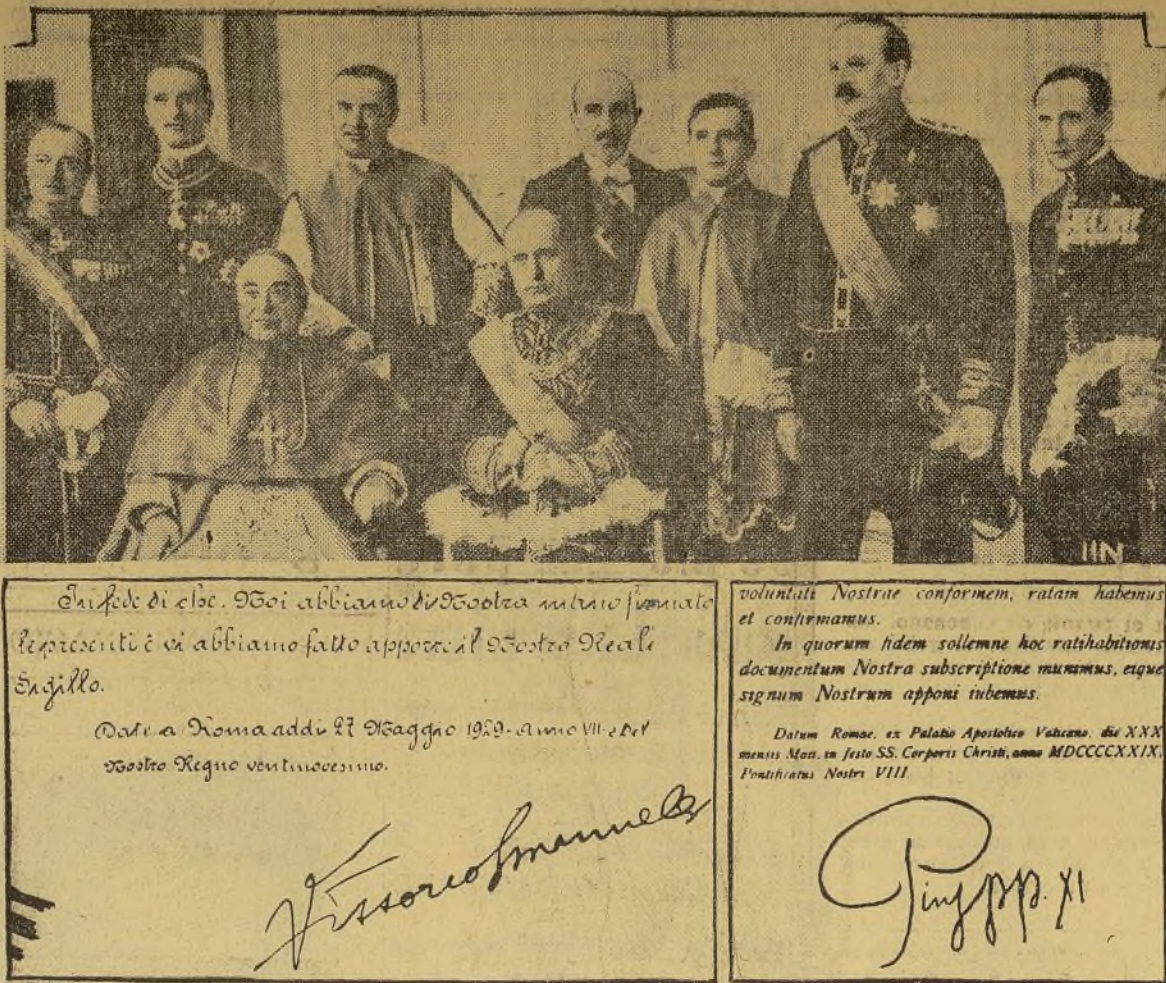 IIN
In fede di che. Noi abbiamo di Nostra mano firmato
le presenti e vi abbiamo fatto apporre il Nostro Reale
Sigillo.
Date a Roma addi 27 Maggio 1929 - Anno VII e del
Nostro Regno ventinovesimo.
Vittorio Emanuele
voluntati Nostrae conformem, ratam habemus
et confirmamus.
In quorum fidem sollemne hoc ratihabitionis
documentum Nostra subscriptione munimus, eique
signum Nostrum apponi iubemus.
Datum Romae, ex Palatio Apostolico Vaticano, die XXX
mensis Maii, in festo SS. Corporis Christi, anno MDCCCCXXIX,
Pontificatus Nostri VIII
Pius PP. XI